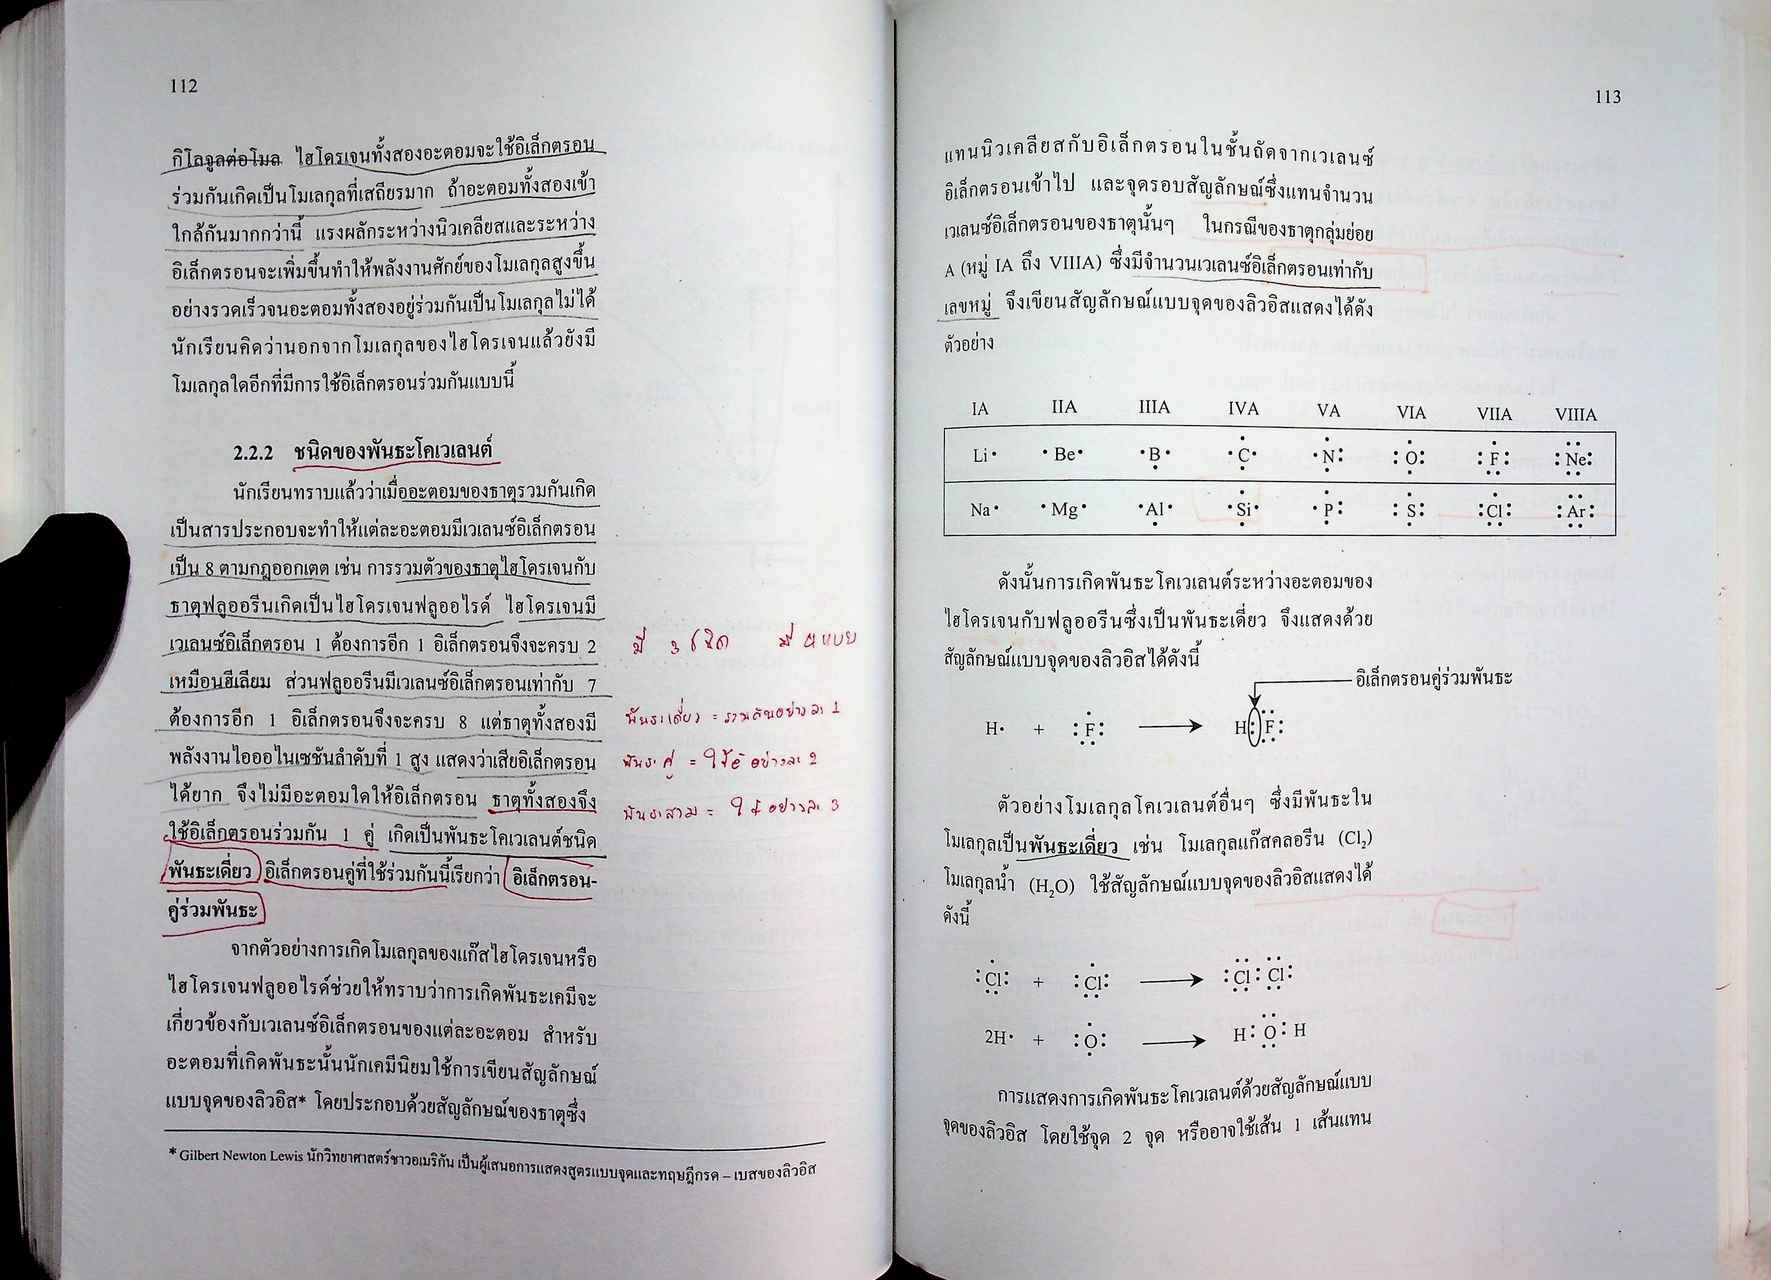 112
กิโลจูลต่อโมล ไฮโดรเจนทั้งสองอะตอมจะใช้อิเล็กตรอน
ร่วมกันเกิดเป็นโมเลกุลที่เสถียรมาก ถ้าอะตอมทั้งสองเข้า
ใกล้กันมากกว่านี้ แรงผลักระหว่างนิวเคลียสและระหว่าง
อิเล็กตรอนจะเพิ่มขึ้นทำให้พลังงานศักย์ของโมเลกุลสูงขึ้น
อย่างรวดเร็วจนอะตอมทั้งสองอยู่ร่วมกันเป็นโมเลกุลไม่ได้
นักเรียนคิดว่านอกจากโมเลกุลของไฮโดรเจนแล้วยังมี
โมเลกุลใดอีกที่มีการใช้อิเล็กตรอนร่วมกันแบบนี้
2.2.2 ชนิดของพันธะโคเวเลนต์
นักเรียนทราบแล้วว่าเมื่ออะตอมของธาตุรวมกันเกิด
เป็นสารประกอบจะทำให้แต่ละอะตอมมีเวเลนซ์อิเล็กตรอน
เป็น 8 ตามกฎออกเตต เช่น การรวมตัวของธาตุไฮโดรเจนกับ
ธาตุฟลูออรีนเกิดเป็นไฮโดรเจนฟลูออไรด์ ไฮโดรเจนมี
เวเลนซ์อิเล็กตรอน 1 ต้องการอีก 1 อิเล็กตรอนจึงจะครบ 2
เหมือนฮีเลียม ส่วนฟลูออรีนมีเวเลนซ์อิเล็กตรอนเท่ากับ 7
ต้องการอีก 1 อิเล็กตรอนจึงจะครบ 8 แต่ธาตุทั้งสองมี
พลังงานไอออไนเซชันลำดับที่ 1 สูง แสดงว่าเสียอิเล็กตรอน
ได้ยาก จึงไม่มีอะตอมใดให้อิเล็กตรอน ธาตุทั้งสองจึง
ใช้อิเล็กตรอนร่วมกัน 1 คู่ เกิดเป็นพันธะโคเวเลนต์ชนิด
พันธะเดี่ยว อิเล็กตรอนคู่ที่ใช้ร่วมกันนี้เรียกว่า อิเล็กตรอน-
คู่ร่วมพันธะ
จากตัวอย่างการเกิดโมเลกุลของแก๊สไฮโดรเจนหรือ
ไฮโดรเจนฟลูออไรด์ช่วยให้ทราบว่าการเกิดพันธะเคมีจะ
เกี่ยวข้องกับเวเลนซ์อิเล็กตรอนของแต่ละอะตอม สำหรับ
อะตอมที่เกิดพันธะนั้นนักเคมีนิยมใช้การเขียนสัญลักษณ์
แบบจุดของลิวอิส* โดยประกอบด้วยสัญลักษณ์ของธาตุซึ่ง
* Gilbert Newton Lewis นักวิทยาศาสตร์ชาวอเมริกัน เป็นผู้เสนอการแสดงสูตรแบบจุดและทฤษฎีกรด – เบสของลิวอิส
มี 3 ชนิด มี แบบ
พันธะเดี่ยว = รวมกันอย่างละ 1
พันธะคู่ = ใช้e อย่างละ 2
พันธะสาม = ใช้ อย่างละ 3
113
แทนนิวเคลียสกับอิเล็กตรอนในชั้นถัดจากเวเลนซ์
อิเล็กตรอนเข้าไป และจุดรอบสัญลักษณ์ซึ่งแทนจำนวน
เวเลนซ์อิเล็กตรอนของธาตุนั้นๆ ในกรณีของธาตุกลุ่มย่อย
A (หมู่ IA ถึง VIIIA) ซึ่งมีจำนวนเวเลนซ์อิเล็กตรอนเท่ากับ
เลขหมู่ จึงเขียนสัญลักษณ์แบบจุดของลิวอิสแสดงได้ดัง
ตัวอย่าง
IA IIA IIIA IVA VA VIA VIIA VIIIA
Li Be B C N O F Ne
Na Mg Al Si P S Cl Ar
ดังนั้นการเกิดพันธะโคเวเลนต์ระหว่างอะตอมของ
ไฮโดรเจนกับฟลูออรีนซึ่งเป็นพันธะเดี่ยว จึงแสดงด้วย
สัญลักษณ์แบบจุดของลิวอิสได้ดังนี้
อิเล็กตรอนคู่ร่วมพันธะ
H + F → H F
ตัวอย่างโมเลกุลโคเวเลนต์อื่นๆ ซึ่งมีพันธะใน
โมเลกุลเป็นพันธะเดี่ยว เช่น โมเลกุลแก๊สคลอรีน (Cl₂)
โมเลกุลน้ำ (H₂O) ใช้สัญลักษณ์แบบจุดของลิวอิสแสดงได้
ดังนี้
Cl + Cl → Cl Cl
2H + O → H O H
การแสดงการเกิดพันธะโคเวเลนต์ด้วยสัญลักษณ์แบบ
จุดของลิวอิส โดยใช้จุด 2 จุด หรืออาจใช้เส้น 1 เส้นแทน